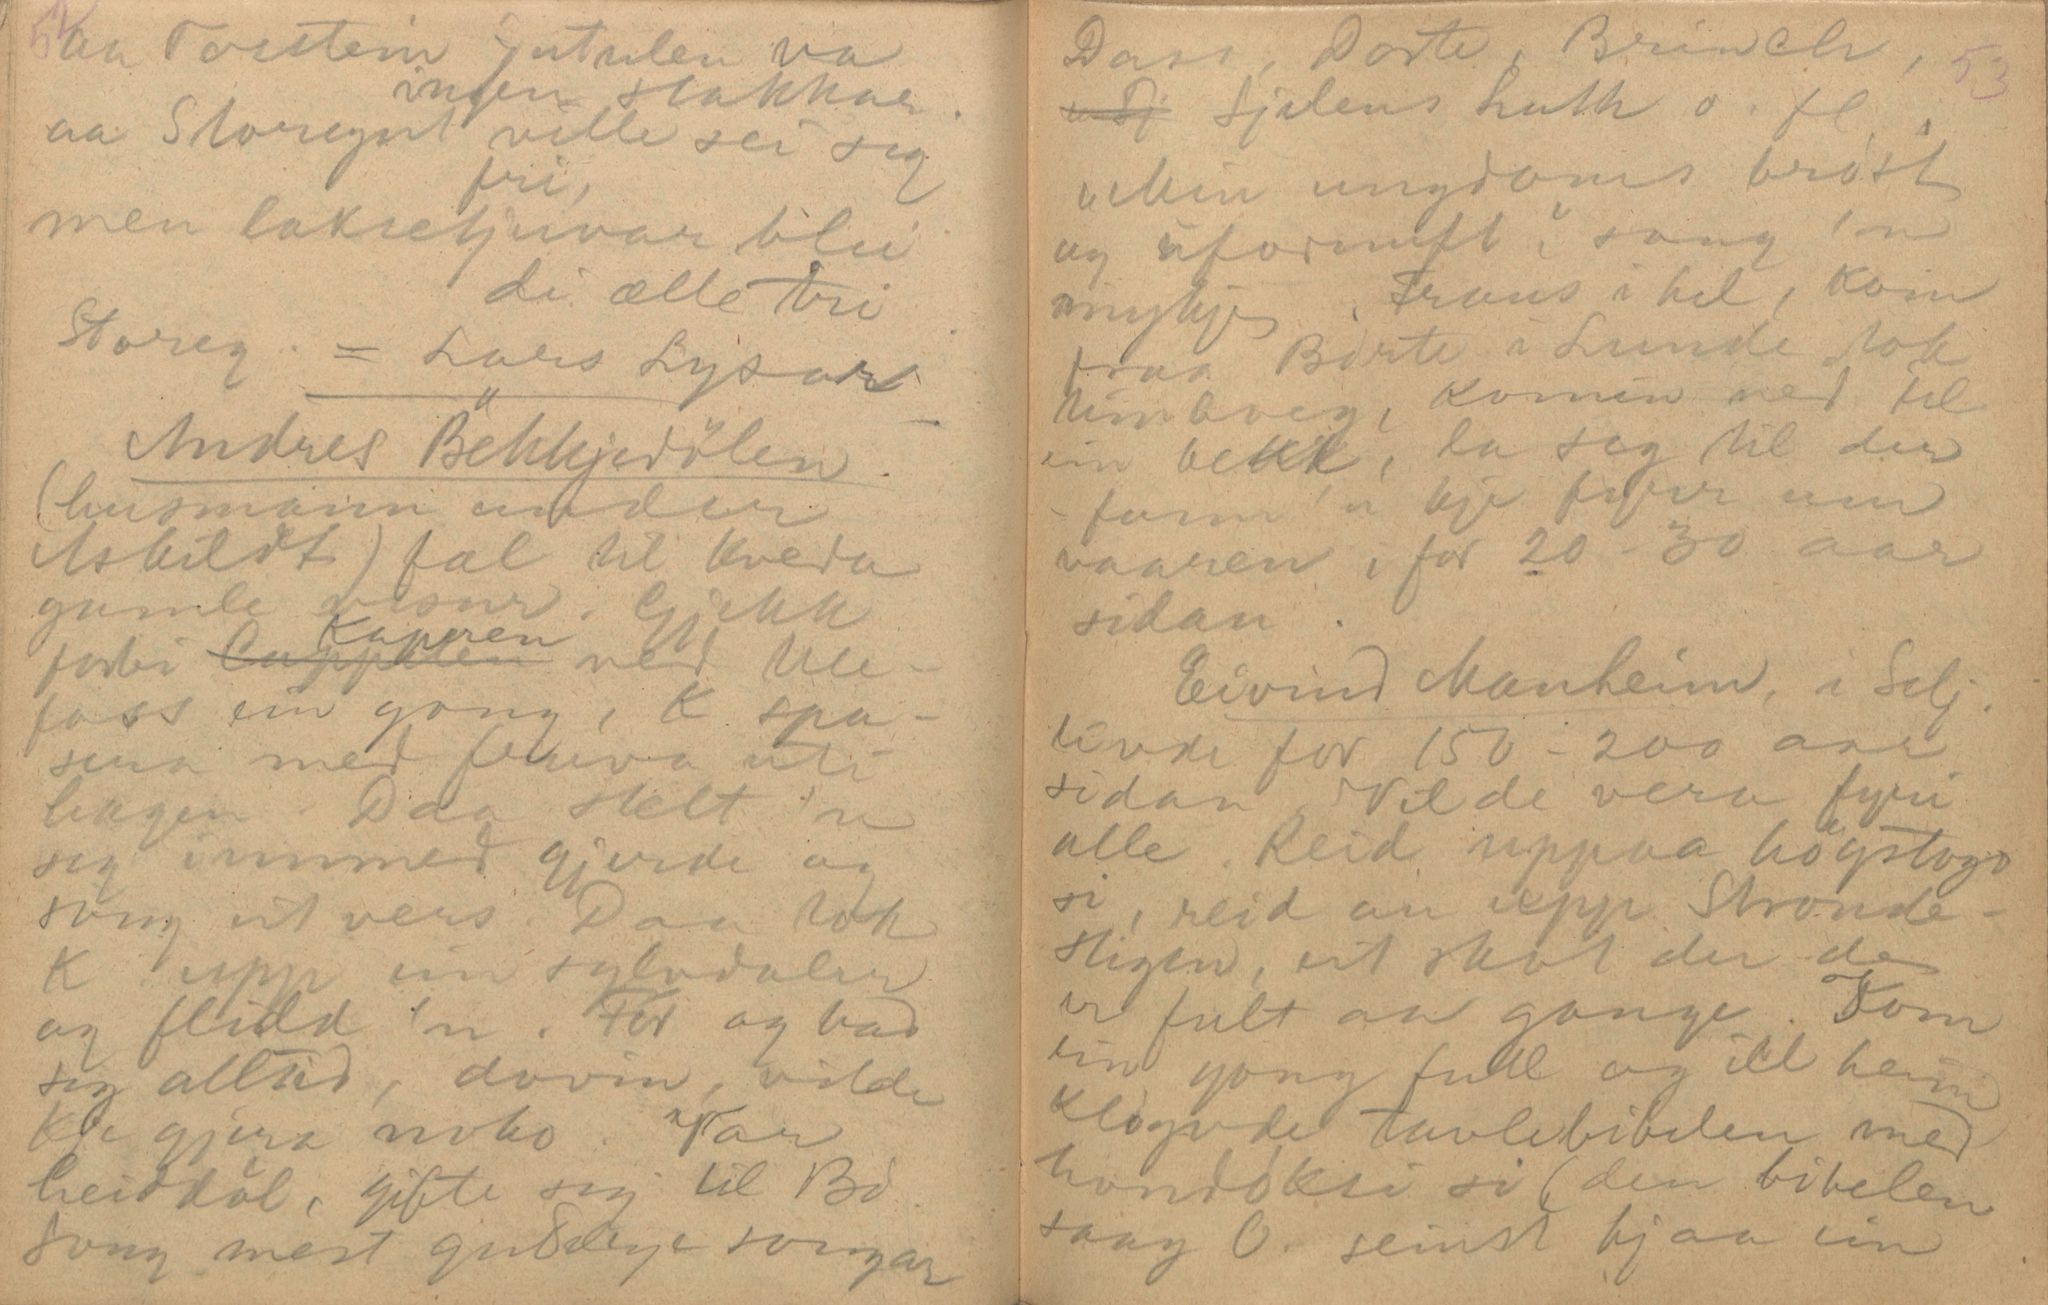 52
aa Torstein Jutulen va
ingen stakkar.
aa Storegut ville sei seg
fri,
men laksetjuvar blei
di ælle tri
Storeg. = Lars Lysar
Andres Bekkjedölen.
(husmann under
Askildt) fal til kveda
gamle visur. Gjekk
forbi Cappelen Kappen ved Ule-
foss ein gong, K spa-
sera med fruva uti
hagen. Daa stelt 'n
seg innmed gjerde og
song eit vers. Daa tok
K upp ein sylvdaler
og fleidd 'n. For og bad
seg alltid, dovin, vilde
kje gjera noko. Var
heiddöl, gifte seg til Bö.
Song mest gudelege songar
53
Dass, Dorte, Brinch,
Sjelens Luth o. fl.
"Min ungdoms bröst
og ufornuft" song 'n
mykje. Fraus i hel, kom
fraa Börte i Lunde tok
heimveg, komin ned til
ein bekk, la seg til der
- fann 'n kje fyrr um
vaaren, for 20-30 aar
sidan.
Eivind Manheim, i Selj.
livde for 150-200 aar
sidan. Vilde vera fyri
alle. Reid uppaa högstogo
si, reid au upp Stronde-
stigen, eit skot der de
er fult aa gange. Kom
ein gong full og ill heim
klöyvde tavlebibelen med
hondöksi si (den bibelen
saag O. seinst hjaa ein